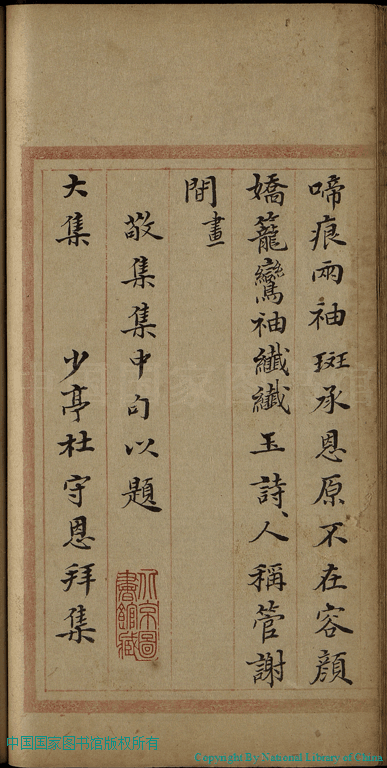 啼痕兩袖斑承恩原不在容顔
嬌籠鸞袖纖纖玉詩人稱管謝
閒畫
敬集集中句以題
大集 少亭杜守恩拜集
北京圖書館藏
中国国家图书馆版权所有
Copyright By National Library of China